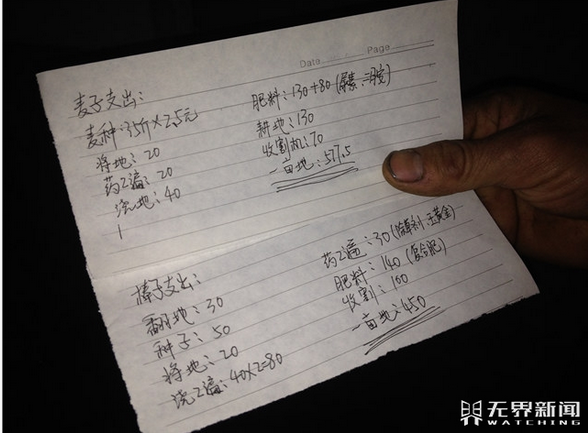 Date Page
麦子支出：
麦种：35斤×2.5元
将地：20
药2遍：20
浇地：40
肥料：130+80（尿素、二胺）
耕地：130
收割机：70
一亩地：577.5
棒子支出：
翻地：30
种子：50
将地：20
浇2遍：40×2=80
药2遍：30（除草剂、玉黄金）
肥料：140（复合肥）
收割：100
一亩地：450
无界新闻
WATCHING